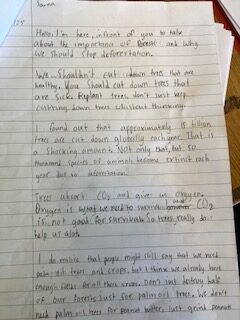 Hello, I'm here, infront of you to talk
about the importance of forests and why
we should stop deforestation.
We shouldn't cut down trees that are
healthy. You should cut down trees that
are sick. Replant trees, don't just keep
cutting down trees without thinking.
I found out that approximately 15 billion
trees are cut down globally each year. That is
a shocking amount. Not only that, but 50
thousand species of animals become extinct each
year due to deforestation.
Trees absorb CO2 and give us oxygen.
Oxygen is what we need to survive and CO2
is not good for survival. So trees really do
help us alot.
I do realise that people might still say that we need
palm oil trees and crops, but I think we already have
enough fields for all them crops. Don't just destroy half
of our forests just for palm oil trees. We don't
need palm oil trees for peanut butter, just grind peanuts